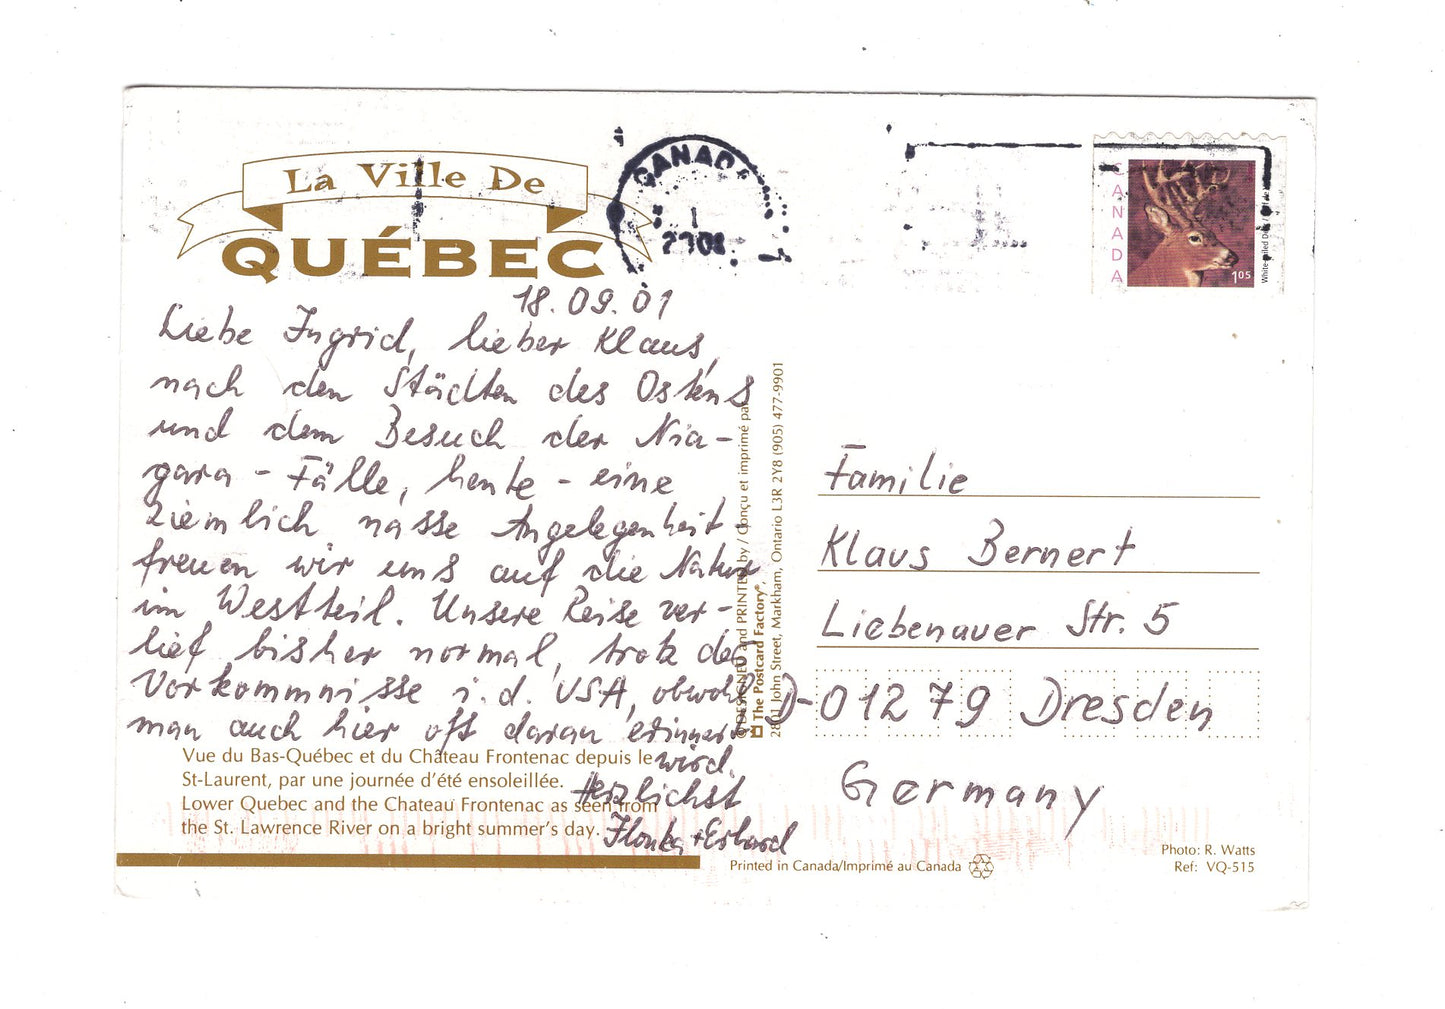 La Ville De
QUÉBEC
CANADA
CANADA
1⁰⁵
18.09.01
Liebe Ingrid, lieber Klaus,
nach den Städten des Ostens
und dem Besuch der Nia-
gara-Fälle, heute - eine
ziemlich nasse Angelegenheit,
freuen wir uns auf die Natur
im Westteil. Unsere Reise ver-
lief bisher normal, trotz der
Vorkommnisse i.d. USA, obwohl
man auch hier oft daran erinnert
wird.
Herzlichst
Ilonka + Erhard
Vue du Bas-Québec et du Château Frontenac depuis le
St-Laurent, par une journée d'été ensoleillée.
Lower Quebec and the Chateau Frontenac as seen from
the St. Lawrence River on a bright summer's day.
© DESIGNED and PRINTED by / Conçu et imprimé par
The Postcard Factory®,
2801 John Street, Markham, Ontario L3R 2Y8 (905) 477-9901
Familie
Klaus Bernert
Liebenauer Str. 5
D-01279 Dresden
Germany
Printed in Canada/Imprimé au Canada
Photo: R. Watts
Ref: VQ-515